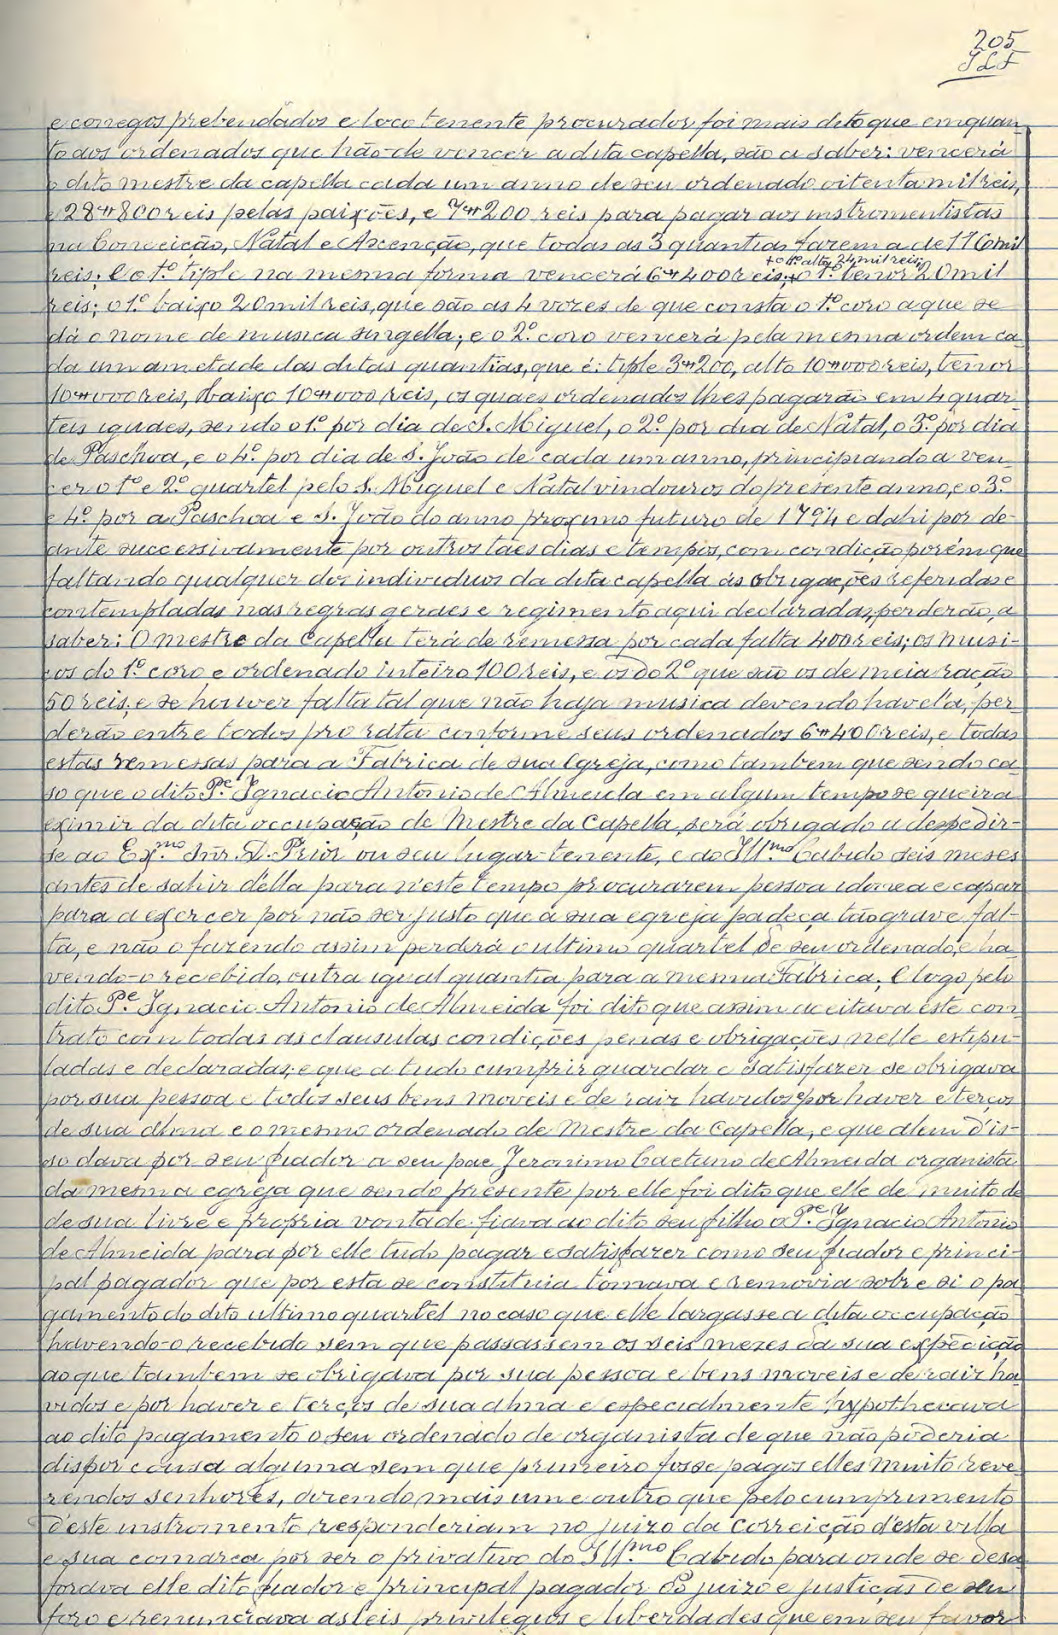 205
JLF
e conegos prebendados e loco tenente procurador foi mais dito que emquan
to aos ordenados que hão-de vencer a dita capella, são a saber: vencerá
o dito mestre da capella cada um anno de seu ordenado oitenta mil reis,
e 28#800 reis pelas paixões, e 7#200 reis para pagar aos instromentistas
na Conceição, Natal e Ascenção, que todas as 3 quantias fazem a de 116 mil
+o 1º alto 24 mil reis;
reis; e o 1º tiple na mesma forma vencerá 6#400 reis;+o 1º tenor 20 mil
reis; o 1º baixo 20 mil reis, que são as 4 vozes de que consta o 1º coro a que se
dá o nome de musica singella; e o 2º coro vencerá pela mesma ordem ca-
da um ametade das ditas quantias, que é: tiple 3#200, alto 10#000 reis, tenor
10#000 reis, baixo 10#000 reis, os quaes ordenados lhes pagarão em 4 quar-
teis iguaes, sendo o 1º por dia de S. Miguel, o 2º por dia de Natal, o 3º por dia
de Paschoa, e o 4º por dia de S. João de cada um anno, principiando a ven-
cer o 1º e 2º quartel pelo S. Miguel e Natal vindouros do presente anno, e o 3º
e 4º por a Paschoa e S. João do anno proximo futuro de 1794 e dahi por de-
ante successivamente por outros taes dias e tempos, com condição porém que
faltando qualquer dos individuos da dita capella ás obrigações referidas e
contempladas nas regras geraes e regimento aqui declaradas, perderão, a
saber: O mestre da Capella terá de remessa por cada falta 400 reis; os musi-
cos do 1º coro e ordenado inteiro 100 reis, e os do 2º que são os de meia ração
50 reis, e se houver falta tal que não haja musica devendo havel'a, per-
derão entre todos pro rata conforme seus ordenados 6#400 reis, e todas
estas remessas para a Fabrica de sua Egreja, como tambem que sendo ca-
so que o dito Pe. Ignacio Antonio de Almeida em algum tempo se queira
eximir da dita occupação de Mestre da Capella, será obrigado a despedir-
se ao Exmo Snr. D. Prior ou seu lugar-tenente, e ao Illmo Cabido seis meses
antes de sahir d'ella para n'este tempo procurarem pessoa idonea e capaz
para a exercer por não ser justo que a sua egreja padeça tão grave fal-
ta, e não o fazendo assim perderá o ultimo quartel de seu ordenado, e ha-
vendo-o recebido, outra igual quantia para a mesma Fabrica; E logo pelo
dito Pe. Ignacio Antonio de Almeida foi dito que assim aceitava este con
trato com todas as clausulas condições penas e obrigações nelle estipu-
ladas e declaradas; e que a tudo cumprir guardar e satisfazer se obrigava
por sua pessoa e todos seus bens moveis e de raiz havidos e por haver e terços
de sua alma e o mesmo ordenado de Mestre da Capella, e que alem d'is-
so dava por seu fiador a seu pae Jeronimo Caetano de Almeida organista
da mesma egreja que sendo presente por elle foi dito que elle de muito de
de sua livre e propria vontade fiava ao dito seu filho o Pe. Ignacio Antonio
de Almeida para por elle tudo pagar e satisfazer como seu fiador e princi-
pal pagador que por esta se constituia tomava e removia sobre si o pa-
gamento do dito ultimo quartel no caso que elle largasse a dita occupação
havendo-o recebido sem que passassem os seis mezes da sua expedição
ao que tambem se obrigava por sua pessoa e bens moveis e de raiz ha-
vidos e por haver e terços de sua alma e especialmente hypothecava
ao dito pagamento o seu ordenado de organista de que não poderia
dispor cousa alguma sem que primeiro fosse pagos elles muito reve-
rendos senhores, dizendo mais um e outro que pelo cumprimento
d'este instromento responderiam no juizo da correição d'esta villa
e sua comarca por ser o privativo do Illmo Cabido para onde se desa-
forava elle dito fiador e principal pagador do juizo e justiças de seu
foro e renunciava as leis privilegios e liberdades que em seu favor